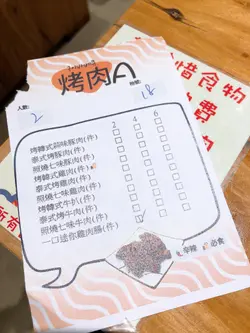 烤肉A
人數:
2
18
2 4 6
烤韓式蒜味豚肉(件)
泰式烤豚肉(件)
照燒七味豚肉(件)
烤韓式雞肉(件)
泰式烤雞肉(件)
照燒七味雞肉(件)
烤韓式牛扒(件)
泰式烤牛肉(件)
照燒七味牛肉(件)
一口迷你雞肉腸(件)
辛辣
必食
惜食物
費
肉
所有